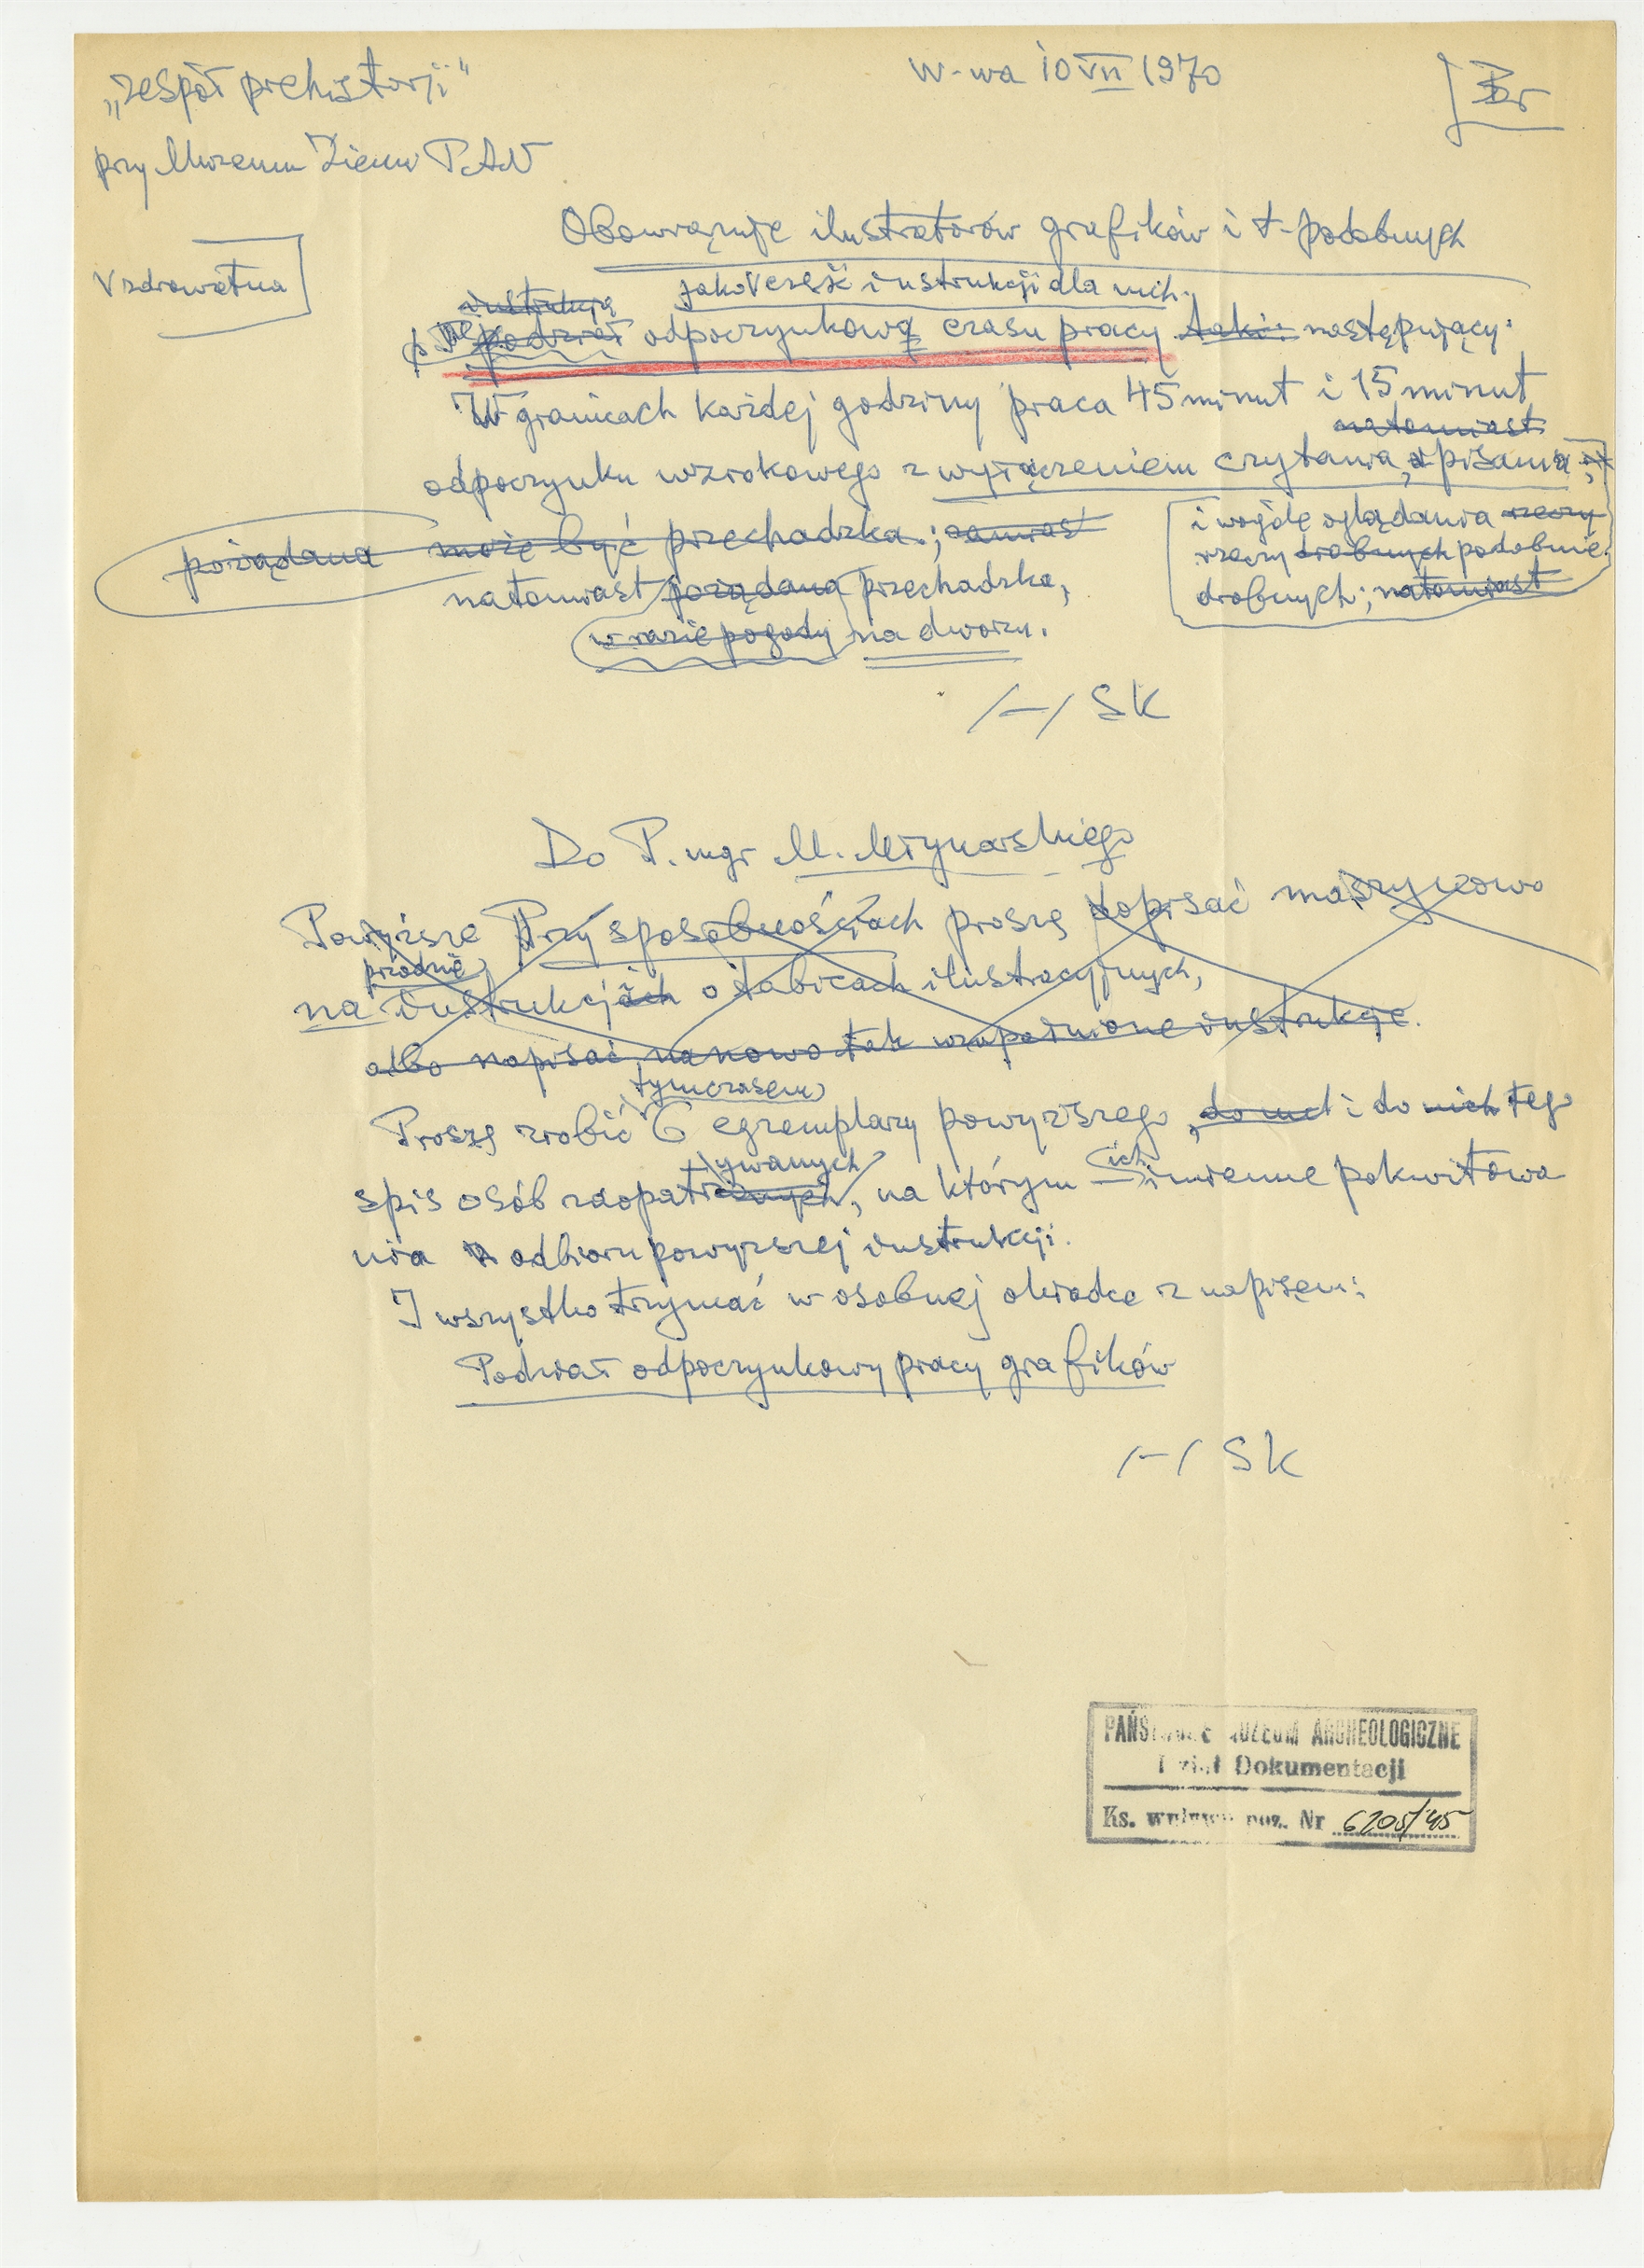 „zespół prehistorji"
W-wa 10 VII 1970
Br
przy Muzeum Ziemi PAN
Obowiązuje ilustratorów grafików i t. podobnych
V zdrowotna
instrukcja jako V część instrukcji dla nich
podział odpoczynkową czasu pracy taki: następujący:
W granicach każdej godziny praca 45 minut i 15 minut
natomiast
odpoczynku wzrokowego z wyłączeniem czytania, pisania,
i wogóle oglądania rzeczy
rzeczy drobnych podobnie
drobnych; natomiast
pożądana może być przechadzka.; zamiast
natomiast pożądana przechadzka,
w razie pogody na dworzu.
/-/ SK
Do P. mgr M. Młynarskiego
Powyższe Przy sposobnościach proszę dopisać maszynowo
przodnie
na instrukcjach o tablicach ilustracyjnych,
albo napisać na nowo tak uzupełnione instrukcje.
tymczasem
Proszę zrobić 6 egzemplarzy powyższego, i do nich tego
ywanych ich
spis osób zaopatrzonych, na którym imienne pokwitowa
nia odbioru powyższej instrukcji.
I wszystko trzymać w osobnej okładce z napisem:
Podział odpoczynkowy pracy grafików
/-/ SK
PAŃSTWOWE MUZEUM ARCHEOLOGICZNE
Dział Dokumentacji
Ks. wpływu poz. Nr 6205/45